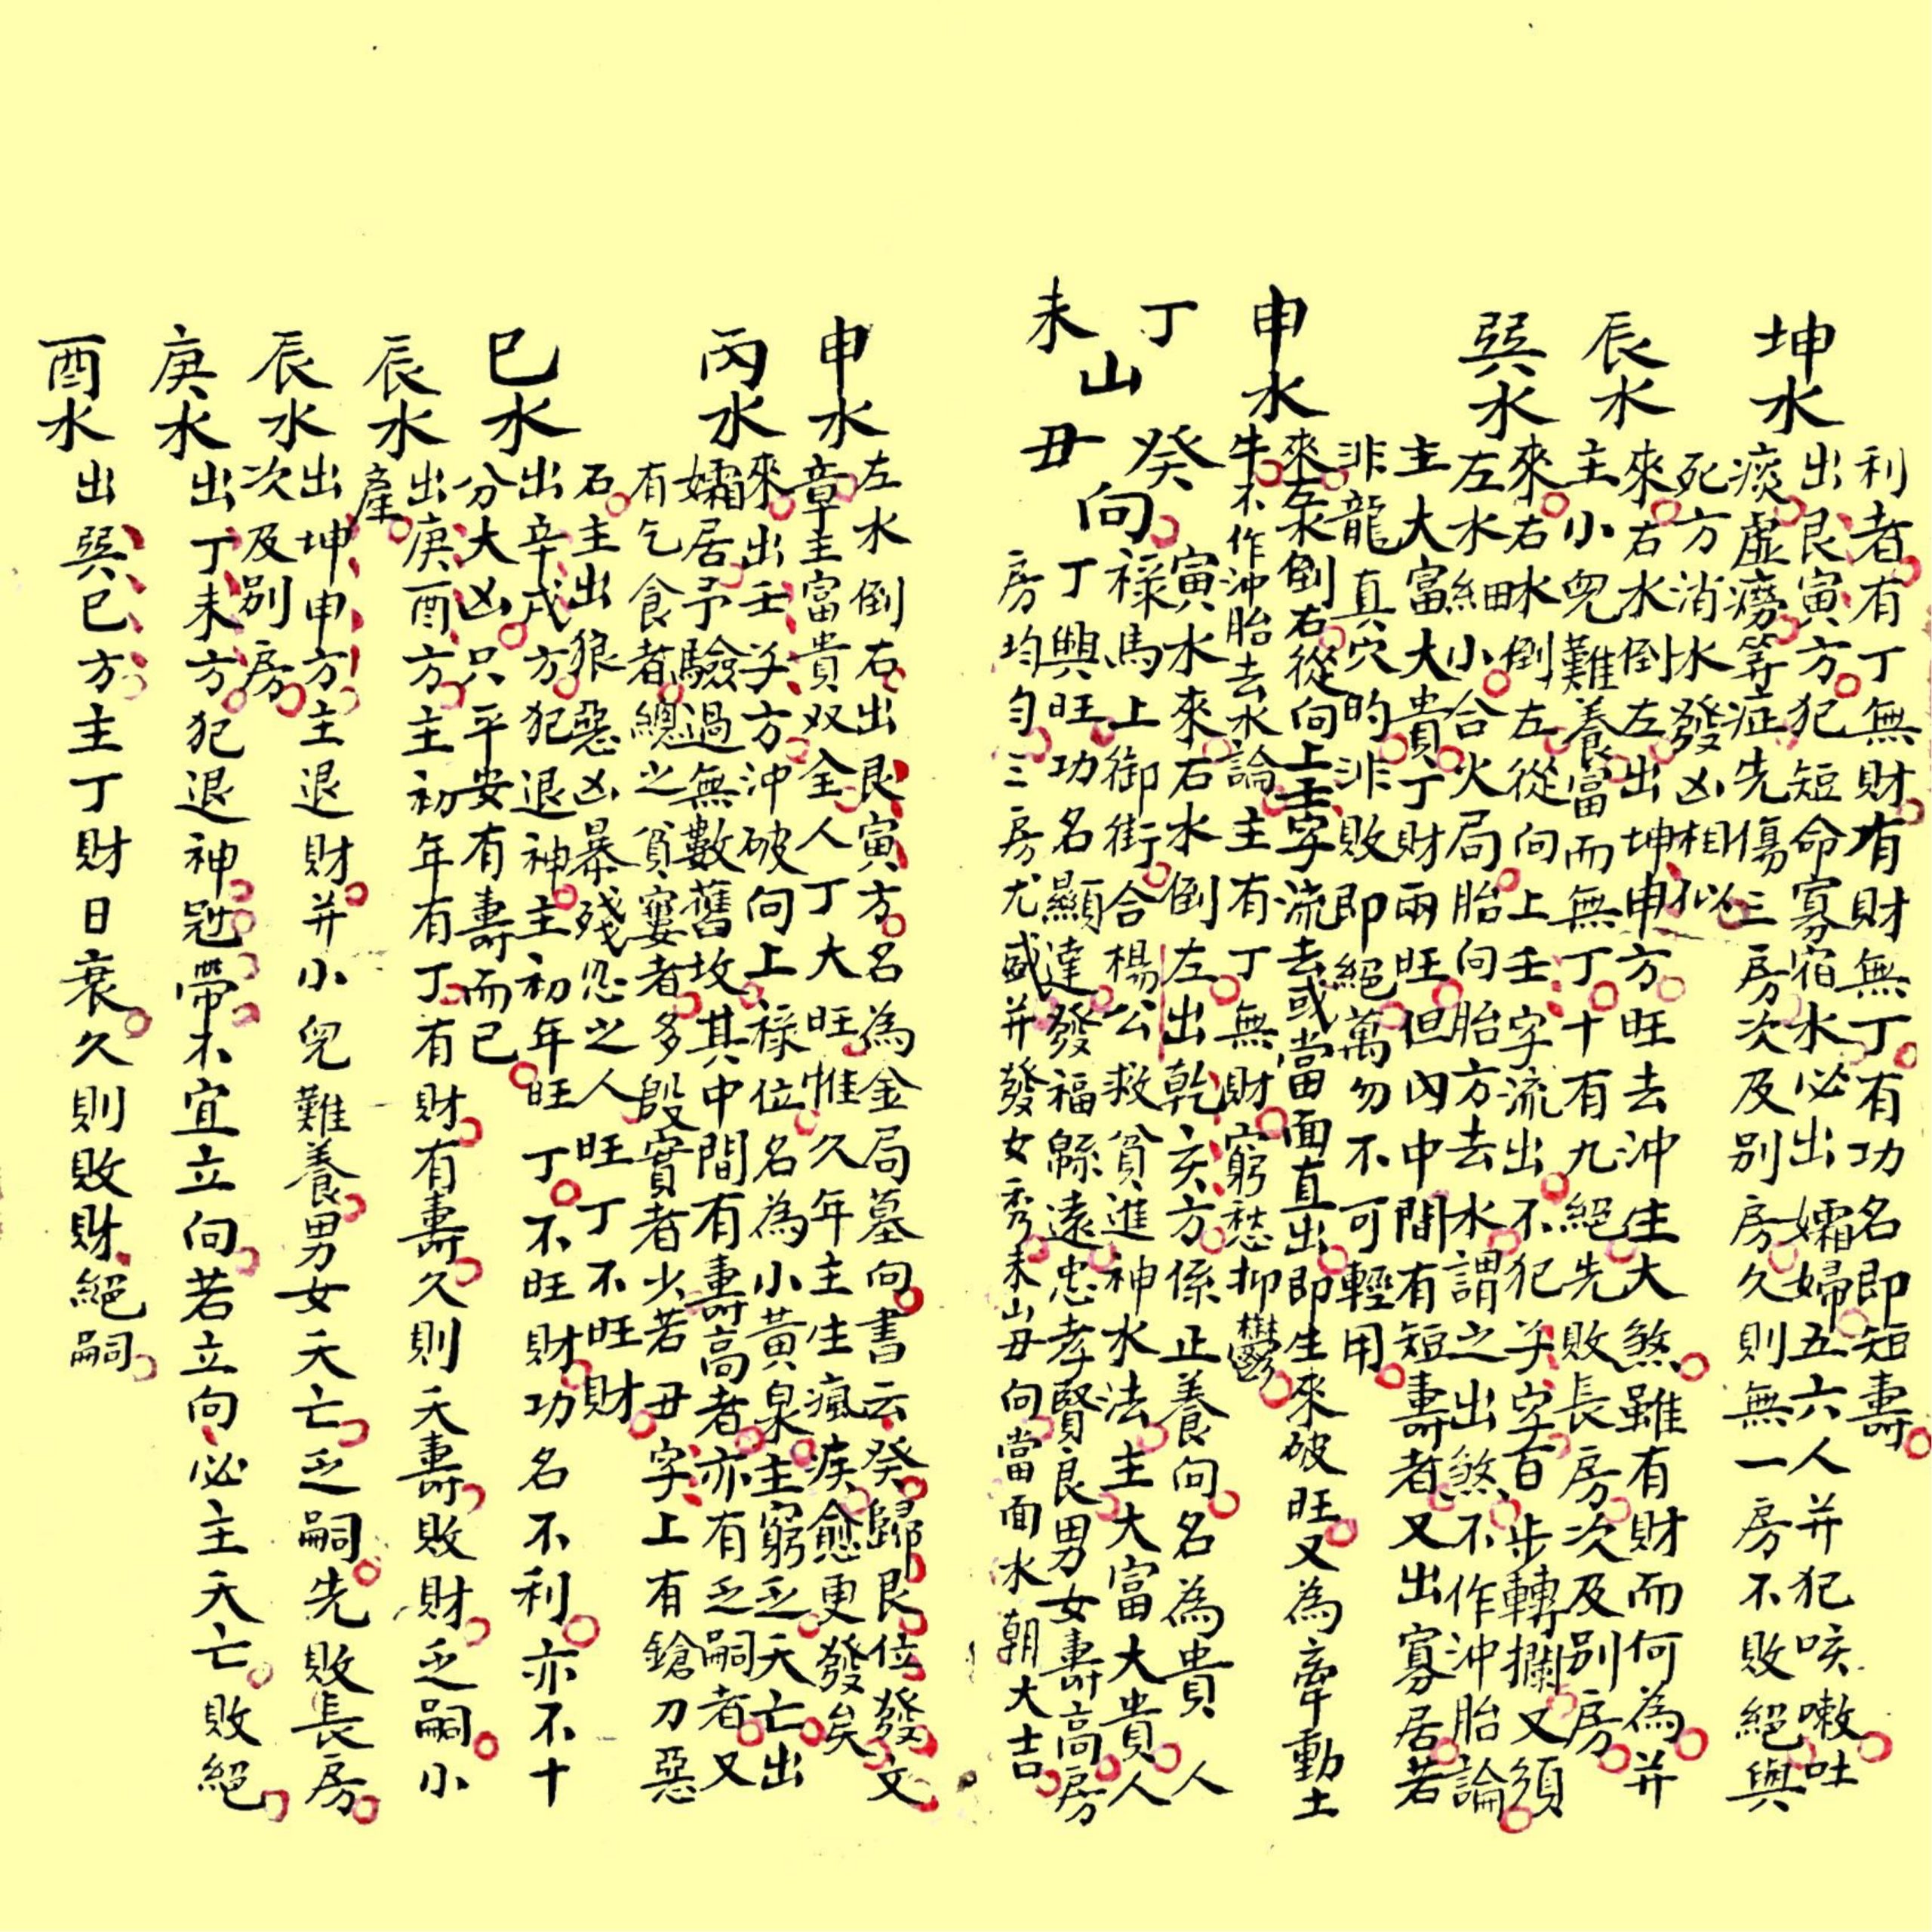 利者有丁無財有財無丁有功名即短壽
坤水
出艮寅方犯短命寡宿水必出孀婦五六人并犯咳嗽吐
痰虛癆等症先傷三房次及別房久則無一房不敗絕與
死方消水發凶相似
辰水
來右水倒左出坤申方旺去沖生大煞雖有財而何為并
主小兒難養富而無丁十有九絕先敗長房次及別房
巽水
來右水倒左從向上壬字流出不犯子字百步轉攔又須
左水細小合火局胎向胎方去水謂之出煞不作沖胎論
主大富大貴丁財兩旺但內中間有短壽者又出寡居若
非龍真穴的非敗即絕萬勿不可輕用
申水
來左水倒右從向上壬字流去或當面直出即生來破旺又為牽動土
牛不作沖胎去水論主有丁無財窮愁抑鬱
丁未山癸丑向
寅水來來右水倒左出乾亥方係正養向名為貴人
祿馬上御街合楊公救貧進神水法主大富大貴人
丁興旺功名顯達發福緜遠忠孝賢良男女壽高房
房均勻三房尤盛并發女秀未山丑向當面水朝大吉
申水
左水倒右出艮寅方名為金局墓向書云癸歸艮位發文
章主富貴双全人丁大旺惟久年主生瘋疾愈更發矣
丙水
來出壬子方沖破向上祿位名為小黃泉主窮乏夭亡出
孀居予驗過無數舊坟其中間有壽高者亦有乏嗣者又
有乞食者總之貧窶者多殷實者少若丑字上有鎗刀惡
石主出狼惡凶暴殘忍之人旺丁不旺財
巳水
出辛戌方犯退神主初年旺丁不旺財功名不利亦不十
分大凶只平安有壽而已
辰水
出庚酉方主初年有丁有財有壽久則夭壽敗財乏嗣小
產
辰水
出坤申方主退財并小兒難養男女夭亡乏嗣先敗長房
次及別房
庚水
出丁未方犯退神冠帶不宜立向若立向必主夭亡敗絕
酉水
出巽巳方主丁財日衰久則敗財絕嗣